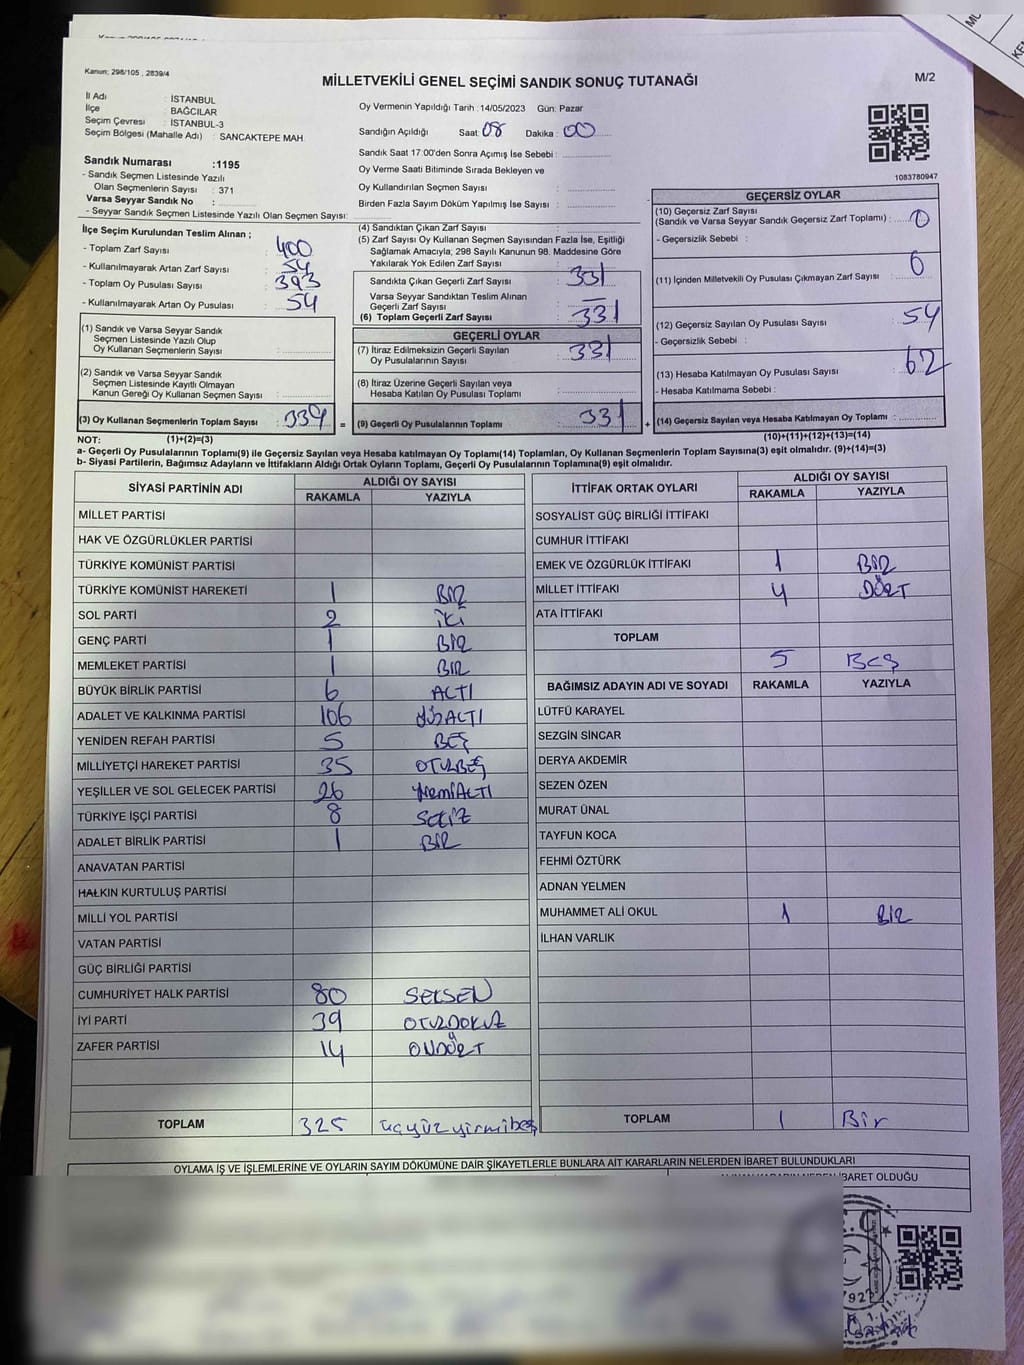 Kanun; 298/105 , 2839/4
MİLLETVEKİLİ GENEL SEÇİMİ SANDIK SONUÇ TUTANAĞI
M/2
İl Adı : İSTANBUL
İlçe : BAĞCILAR
Seçim Çevresi : İSTANBUL-3
Seçim Bölgesi (Mahalle Adı) : SANCAKTEPE MAH.
Oy Vermenin Yapıldığı Tarih : 14/05/2023 Gün: Pazar
Sandığın Açıldığı Saat: 08 Dakika : 00
Sandık Saat 17:00'den Sonra Açımış İse Sebebi :
Oy Verme Saati Bitiminde Sırada Bekleyen ve
Oy Kullandırılan Seçmen Sayısı :
Birden Fazla Sayım Döküm Yapılmış İse Sayısı :
1083780947
Sandık Numarası :1195
- Sandık Seçmen Listesinde Yazılı
Olan Seçmenlerin Sayısı : 371
Varsa Seyyar Sandık No :
- Seyyar Sandık Seçmen Listesinde Yazılı Olan Seçmen Sayısı:
İlçe Seçim Kurulundan Teslim Alınan ;
- Toplam Zarf Sayısı : 400
- Kullanılmayarak Artan Zarf Sayısı : 54
- Toplam Oy Pusulası Sayısı : 393
- Kullanılmayarak Artan Oy Pusulası : 54
(1) Sandık ve Varsa Seyyar Sandık
Seçmen Listesinde Yazılı Olup
Oy Kullanan Seçmenlerin Sayısı :
(2) Sandık ve Varsa Seyyar Sandık
Seçmen Listesinde Kayıtlı Olmayan
Kanun Gereği Oy Kullanan Seçmen Sayısı :
(3) Oy Kullanan Seçmenlerin Toplam Sayısı : 339 =
(4) Sandıktan Çıkan Zarf Sayısı :
(5) Zarf Sayısı Oy Kullanan Seçmen Sayısından Fazla İse, Eşitliği
Sağlamak Amacıyla, 298 Sayılı Kanunun 98. Maddesine Göre
Yakılarak Yok Edilen Zarf Sayısı :
Sandıkta Çıkan Geçerli Zarf Sayısı : 331
Varsa Seyyar Sandıktan Teslim Alınan
Geçerli Zarf Sayısı : —
(6) Toplam Geçerli Zarf Sayısı : 331
GEÇERLİ OYLAR
(7) İtiraz Edilmeksizin Geçerli Sayılan : 331
Oy Pusulalarının Sayısı
(8) İtiraz Üzerine Geçerli Sayılan veya
Hesaba Katılan Oy Pusulası Toplamı :
(9) Geçerli Oy Pusulalarının Toplamı : 331 +
GEÇERSİZ OYLAR
(10) Geçersiz Zarf Sayısı
(Sandık ve Varsa Seyyar Sandık Geçersiz Zarf Toplamı) : 0
- Geçersizlik Sebebi :
(11) İçinden Milletvekili Oy Pusulası Çıkmayan Zarf Sayısı : 0
(12) Geçersiz Sayılan Oy Pusulası Sayısı : 54
- Geçersizlik Sebebi :
(13) Hesaba Katılmayan Oy Pusulası Sayısı : 62
- Hesaba Katılmama Sebebi :
(14) Geçersiz Sayılan veya Hesaba Katılmayan Oy Toplamı :
NOT: (1)+(2)=(3) (10)+(11)+(12)+(13)=(14)
a- Geçerli Oy Pusulasının Toplamı(9) ile Geçersiz Sayılan veya Hesaba katılmayan Oy Toplamı(14) Toplamları, Oy Kullanan Seçmenlerin Toplam Sayısına(3) eşit olmalıdır. (9)+(14)=(3)
b- Siyasi Partilerin, Bağımsız Adayların ve İttifakların Aldığı Ortak Oyların Toplamı, Geçerli Oy Pusulalarının Toplamına(9) eşit olmalıdır.
SİYASİ PARTİNİN ADI ALDIĞI OY SAYISI
RAKAMLA YAZIYLA
MİLLET PARTİSİ
HAK VE ÖZGÜRLÜKLER PARTİSİ
TÜRKİYE KOMÜNİST PARTİSİ
TÜRKİYE KOMÜNİST HAREKETİ 1 BİR
SOL PARTİ 2 İKİ
GENÇ PARTİ 1 BİR
MEMLEKET PARTİSİ 1 BİR
BÜYÜK BİRLİK PARTİSİ 6 ALTI
ADALET VE KALKINMA PARTİSİ 106 YÜZALTI
YENİDEN REFAH PARTİSİ 5 BEŞ
MİLLİYETÇİ HAREKET PARTİSİ 35 OTUZBEŞ
YEŞİLLER VE SOL GELECEK PARTİSİ 26 YİRMİALTI
TÜRKİYE İŞÇİ PARTİSİ 8 SEKİZ
ADALET BİRLİK PARTİSİ 1 BİR
ANAVATAN PARTİSİ
HALKIN KURTULUŞ PARTİSİ
MİLLİ YOL PARTİSİ
VATAN PARTİSİ
GÜÇ BİRLİĞİ PARTİSİ
CUMHURİYET HALK PARTİSİ 80 SEKSEN
İYİ PARTİ 39 OTUZDOKUZ
ZAFER PARTİSİ 14 ONDÖRT
TOPLAM 325 üçyüzyirmibeş
İTTİFAK ORTAK OYLARI ALDIĞI OY SAYISI
RAKAMLA YAZIYLA
SOSYALİST GÜÇ BİRLİĞİ İTTİFAKI
CUMHUR İTTİFAKI
EMEK VE ÖZGÜRLÜK İTTİFAKI 1 BİR
MİLLET İTTİFAKI 4 DÖRT
ATA İTTİFAKI
TOPLAM
5 BEŞ
BAĞIMSIZ ADAYIN ADI VE SOYADI RAKAMLA YAZIYLA
LÜTFÜ KARAYEL
SEZGİN SİNCAR
DERYA AKDEMİR
SEZEN ÖZEN
MURAT ÜNAL
TAYFUN KOCA
FEHMİ ÖZTÜRK
ADNAN YELMEN
MUHAMMET ALİ OKUL 1 BİR
İLHAN VARLIK
TOPLAM 1 Bir
OYLAMA İŞ VE İŞLEMLERİNE VE OYLARIN SAYIM DÖKÜMÜNE DAİR ŞİKAYETLERLE BUNLARA AİT KARARLARIN NELERDEN İBARET BULUNDUKLARI
İBARET OLDUĞU